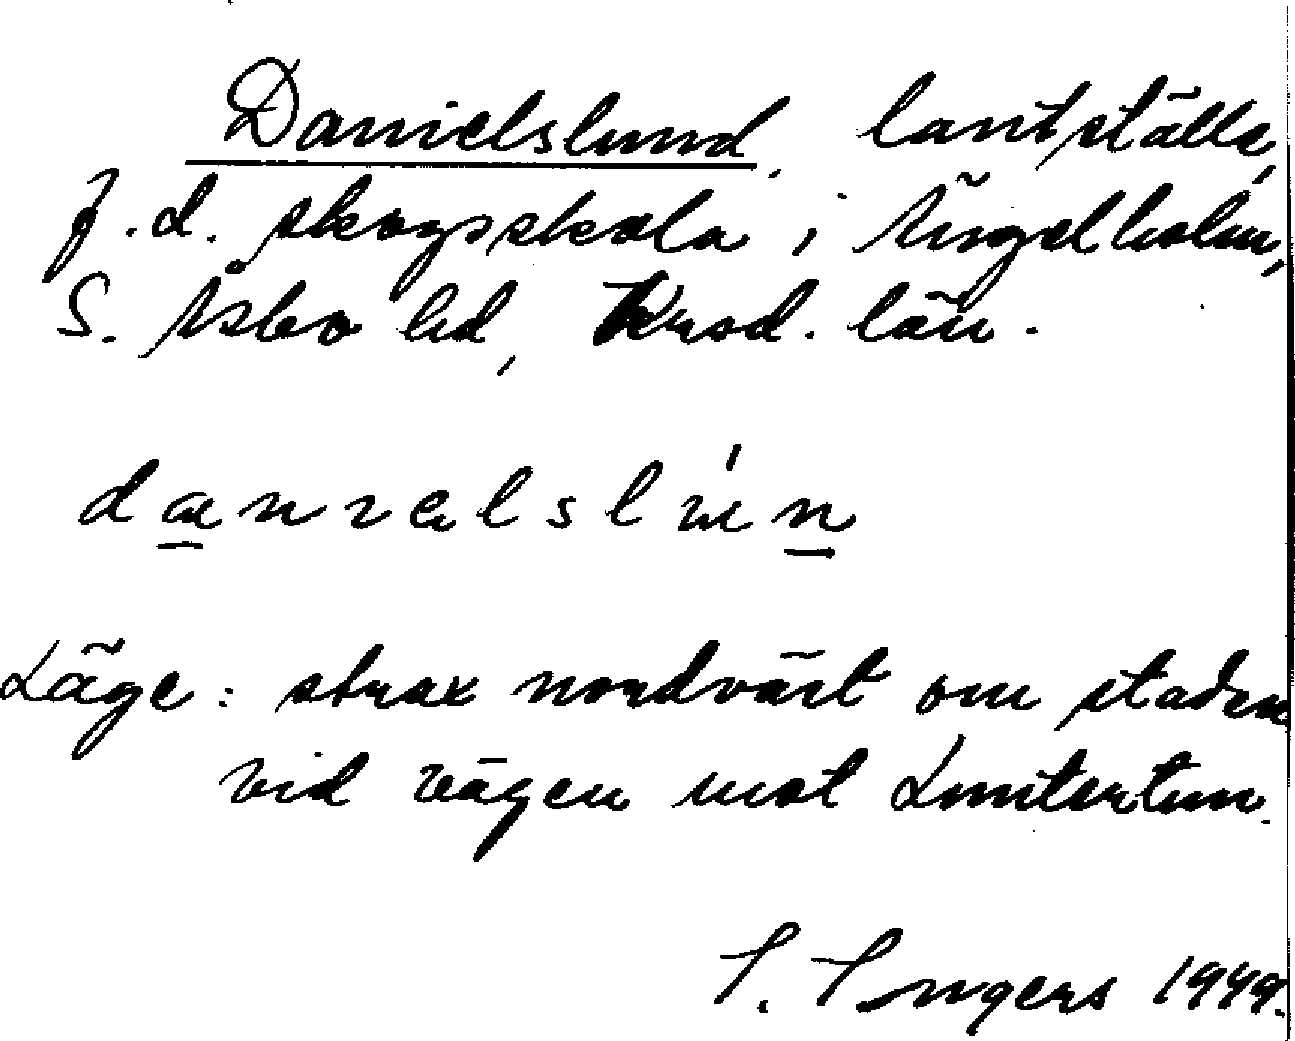 Danielslund, lantställe,
f.d. skogsskola i Ängelholm,
S. Åsbo hd, Krsd. län.
dænɪelslu'n
Läge: strax nordväst om staden
vid vägen mot Luntertun.
I. Ingers 1949.